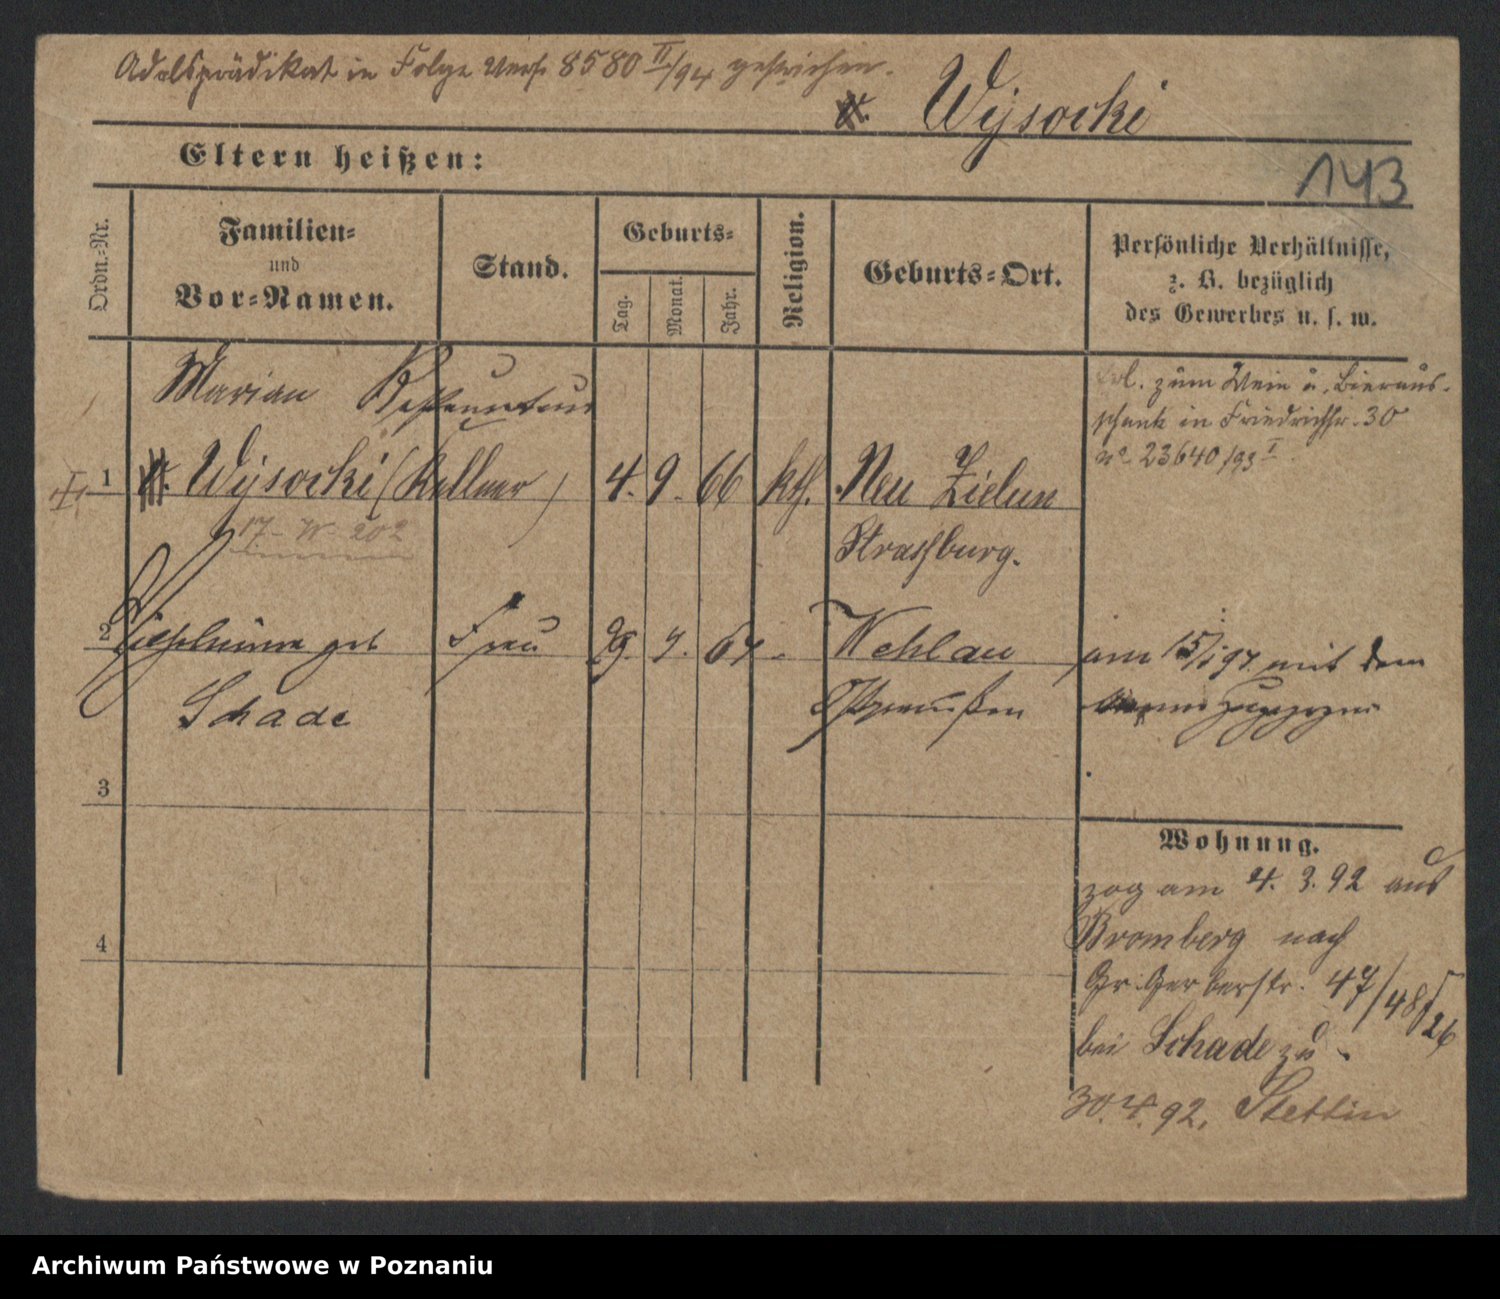 Adelsprädikat in Folge Verf. 8580 II/94 gestrichen.
v. Wysocki
Eltern heißen:
143
Ordn.-Nr.
Familien-
und
Vor-Namen.
Stand.
Geburts-
Tag.
Monat.
Jahr.
Religion.
Geburts-Ort.
Persönliche Verhältnisse,
z. B. bezüglich
des Gewerbes u. s. w.
Marian Restaurateur
1 v. Wysocki (Kellner) 4. 9. 66 kth. Neu Zielun
Strasburg.
17- W- 202
zum Wein u. Bieraus-
schank in Friedrichstr. 30
23640/93 I
2 Wilhelmine geb Frau 29. 9. 67 - Wehlau
Schade
Ostpreußen
am 15/1 97 mit dem
zugezogen
3
4
Wohnung.
zog am 4. 3. 92 aus
Bromberg nach
Gr. Gerberstr. 47/48
26
bei Schade zu.
30.4.92, Stettin
Archiwum Państwowe w Poznaniu